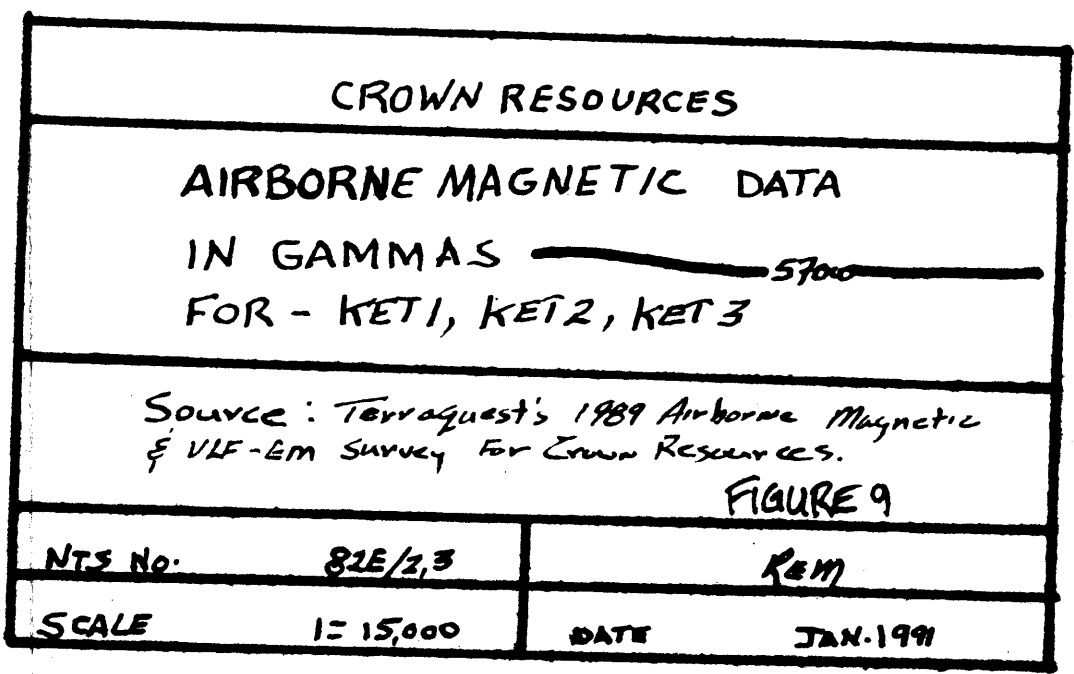 CROWN RESOURCES
AIRBORNE MAGNETIC DATA
IN GAMMAS 57000
FOR - KET1, KET2, KET3
Source: Terraquest's 1989 Airborne Magnetic
& VLF-Em Survey For Crown Resources.
FIGURE 9
NTS No. 82E/2,3 REM
SCALE 1=15,000 DATE JAN.1991